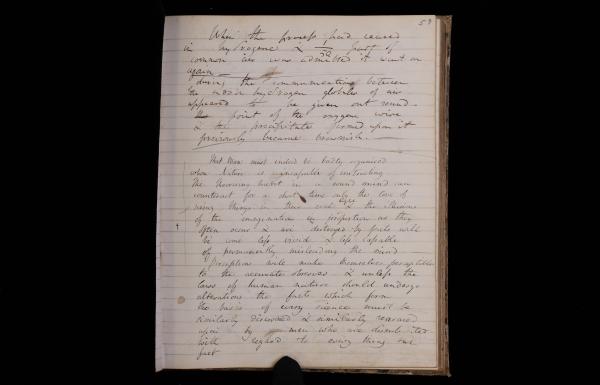 53
When the process had ceased
in hydrogene & 1/30 part of
common air was admitted it went on
again —
During the communication between
the hydrogen globules of air
appeared to be given out round
the point of the oxygen wire
& the precipitate formed upon it
previously became brownish. —
That Man must indeed be badly organised
whom Nature is incapable of
The in a sound mind can
counteract for a short time only the love of
things in their & the illusions
of the imagination in proportion as they
often occur & are destroyed by facts will
become less vivid & less capable
of permanently misleading the mind
Perceptions will make themselves perceptible
to the accurate observer & unless the
laws of human nature should undergo
alterations the facts which form
the basis of every science must be
similarly discovered & similarly reasoned
upon by men who are
with regard to every thing but
fact